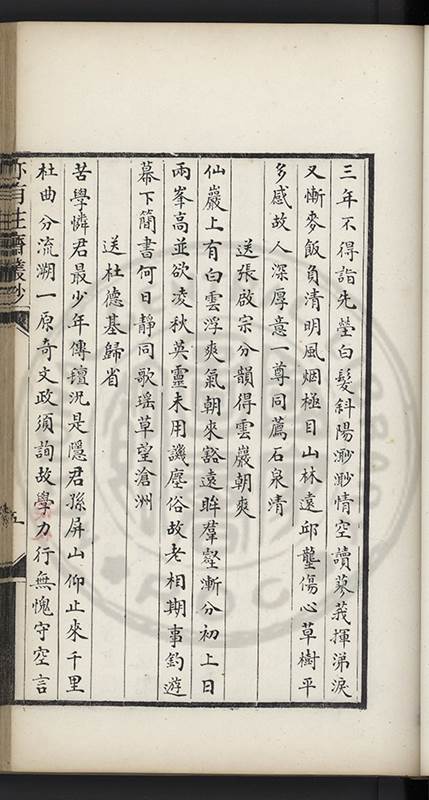 三年不得詣先塋白髮斜陽渺渺情空讀蓼莪揮涕淚
又慚麥飯負清明風烟極目山林遠邱壟傷心草樹平
多感故人深厚意一尊同薦石泉清
送張啟宗分韻得雲巖朝爽
仙巖上有白雲浮爽氣朝來豁遠眸羣壑漸分初上日
兩峯高並欲凌秋英靈未用譏塵俗故老相期事釣遊
幕下簡書何日靜同歌瑤草望滄洲
送杜德基歸省
苦學憐君最少年傳璮況是隱君孫屏山仰止來千里
杜曲分流溯一原奇文政須詢故學力行無愧守空言
亦有生齋叢鈔
五